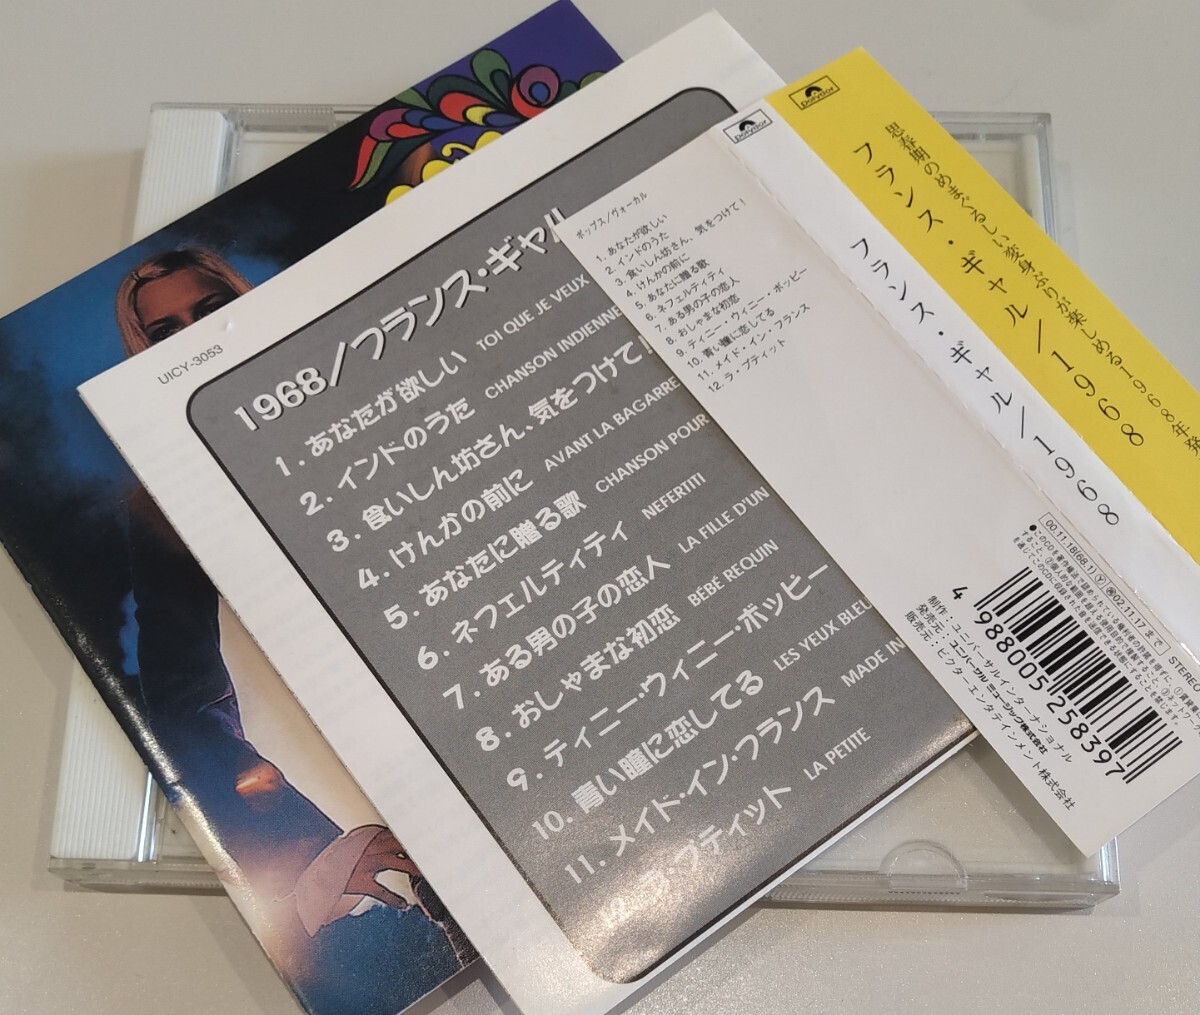 UICY-3053
1968/フランス・ギャル
1. あなたが欲しい TOI QUE JE VEUX
2. インドのうた CHANSON INDIENNE
3. 食いしん坊さん、気をつけて!
4. けんかの前に AVANT LA BAGARRE
5. あなたに贈る歌 CHANSON POUR
6. ネフェルティティ NEFERTITI
7. ある男の子の恋人 LA FILLE D'UN
8. おしゃまな初恋 BÉBÉ REQUIN
9. ティニー・ウィニー・ボッピー
10. 青い瞳に恋してる LES YEUX BLEU
11. メイド・イン・フランス MADE IN
12. ラ・プティット LA PETITE
polydor
ポップス/ヴォーカル
1. あなたが欲しい
2. インドのうた
3. 食いしん坊さん、気をつけて!
4. けんかの前に
5. あなたに贈る歌
6. ネフェルティティ
7. ある男の子の恋人
8. おしゃまな初恋
9. ティニー・ウィニー・ボッピー
10. 青い瞳に恋してる
11. メイド・イン・フランス
12. ラ・プティット
フランス・ギャル/1968
polydor
思春期のめまぐるしい変身ぶりが楽しめる1968年発
フランス・ギャル/1968
00.11.18(68.1) Ⓨ 02.11.17 まで
STEREO
4 988005 258397
制作・ユニバーサルインターナショナル
発売元:ユニバーサル ミュージック株式会社
販売元:ビクター エンタテインメント株式会社